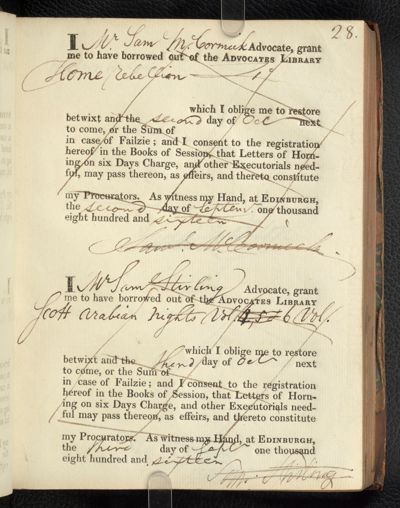 28.
I Mr Sam McCormick Advocate, grant
me to have borrowed out of the ADVOCATES LIBRARY
Home, rebellion
which I oblige me to restore
betwixt and the second day of Oct next
to come, or the Sum of
in case of Failzie; and I consent to the registration
hereof in the Books of Session, that Letters of Horn-
ing on six Days Charge, and other Executorials need-
ful, may pass thereon, as effeirs, and thereto constitute
my Procurators. As witness my Hand, at EDINBURGH,
the second day of Septem. one thousand
eight hundred and sixteen
Saml. McCormick.
I Mr Saml Stirling Advocate, grant
me to have borrowed out of the ADVOCATES LIBRARY
Scott Arabian Nights Vol. 4, 5 & 6 Vol.
which I oblige me to restore
betwixt and the third day of Oct next
to come, or the Sum of
in case of Failzie; and I consent to the registration
hereof in the Books of Session, that Letters of Horn-
ing on six Days Charge, and other Executorials need-
ful may pass thereon, as effeirs, and thereto constitute
my Procurators. As witness my Hand, at EDINBURGH,
the third day of Sept one thousand
eight hundred and sixteen
Stirling